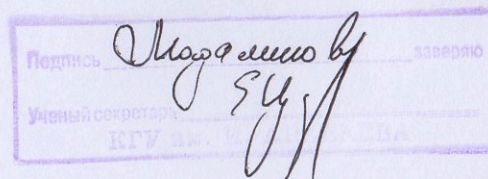 Подпись Мадалиновой заверяю
Ученый секретарь
КГУ им. И. АРАБАЕВА